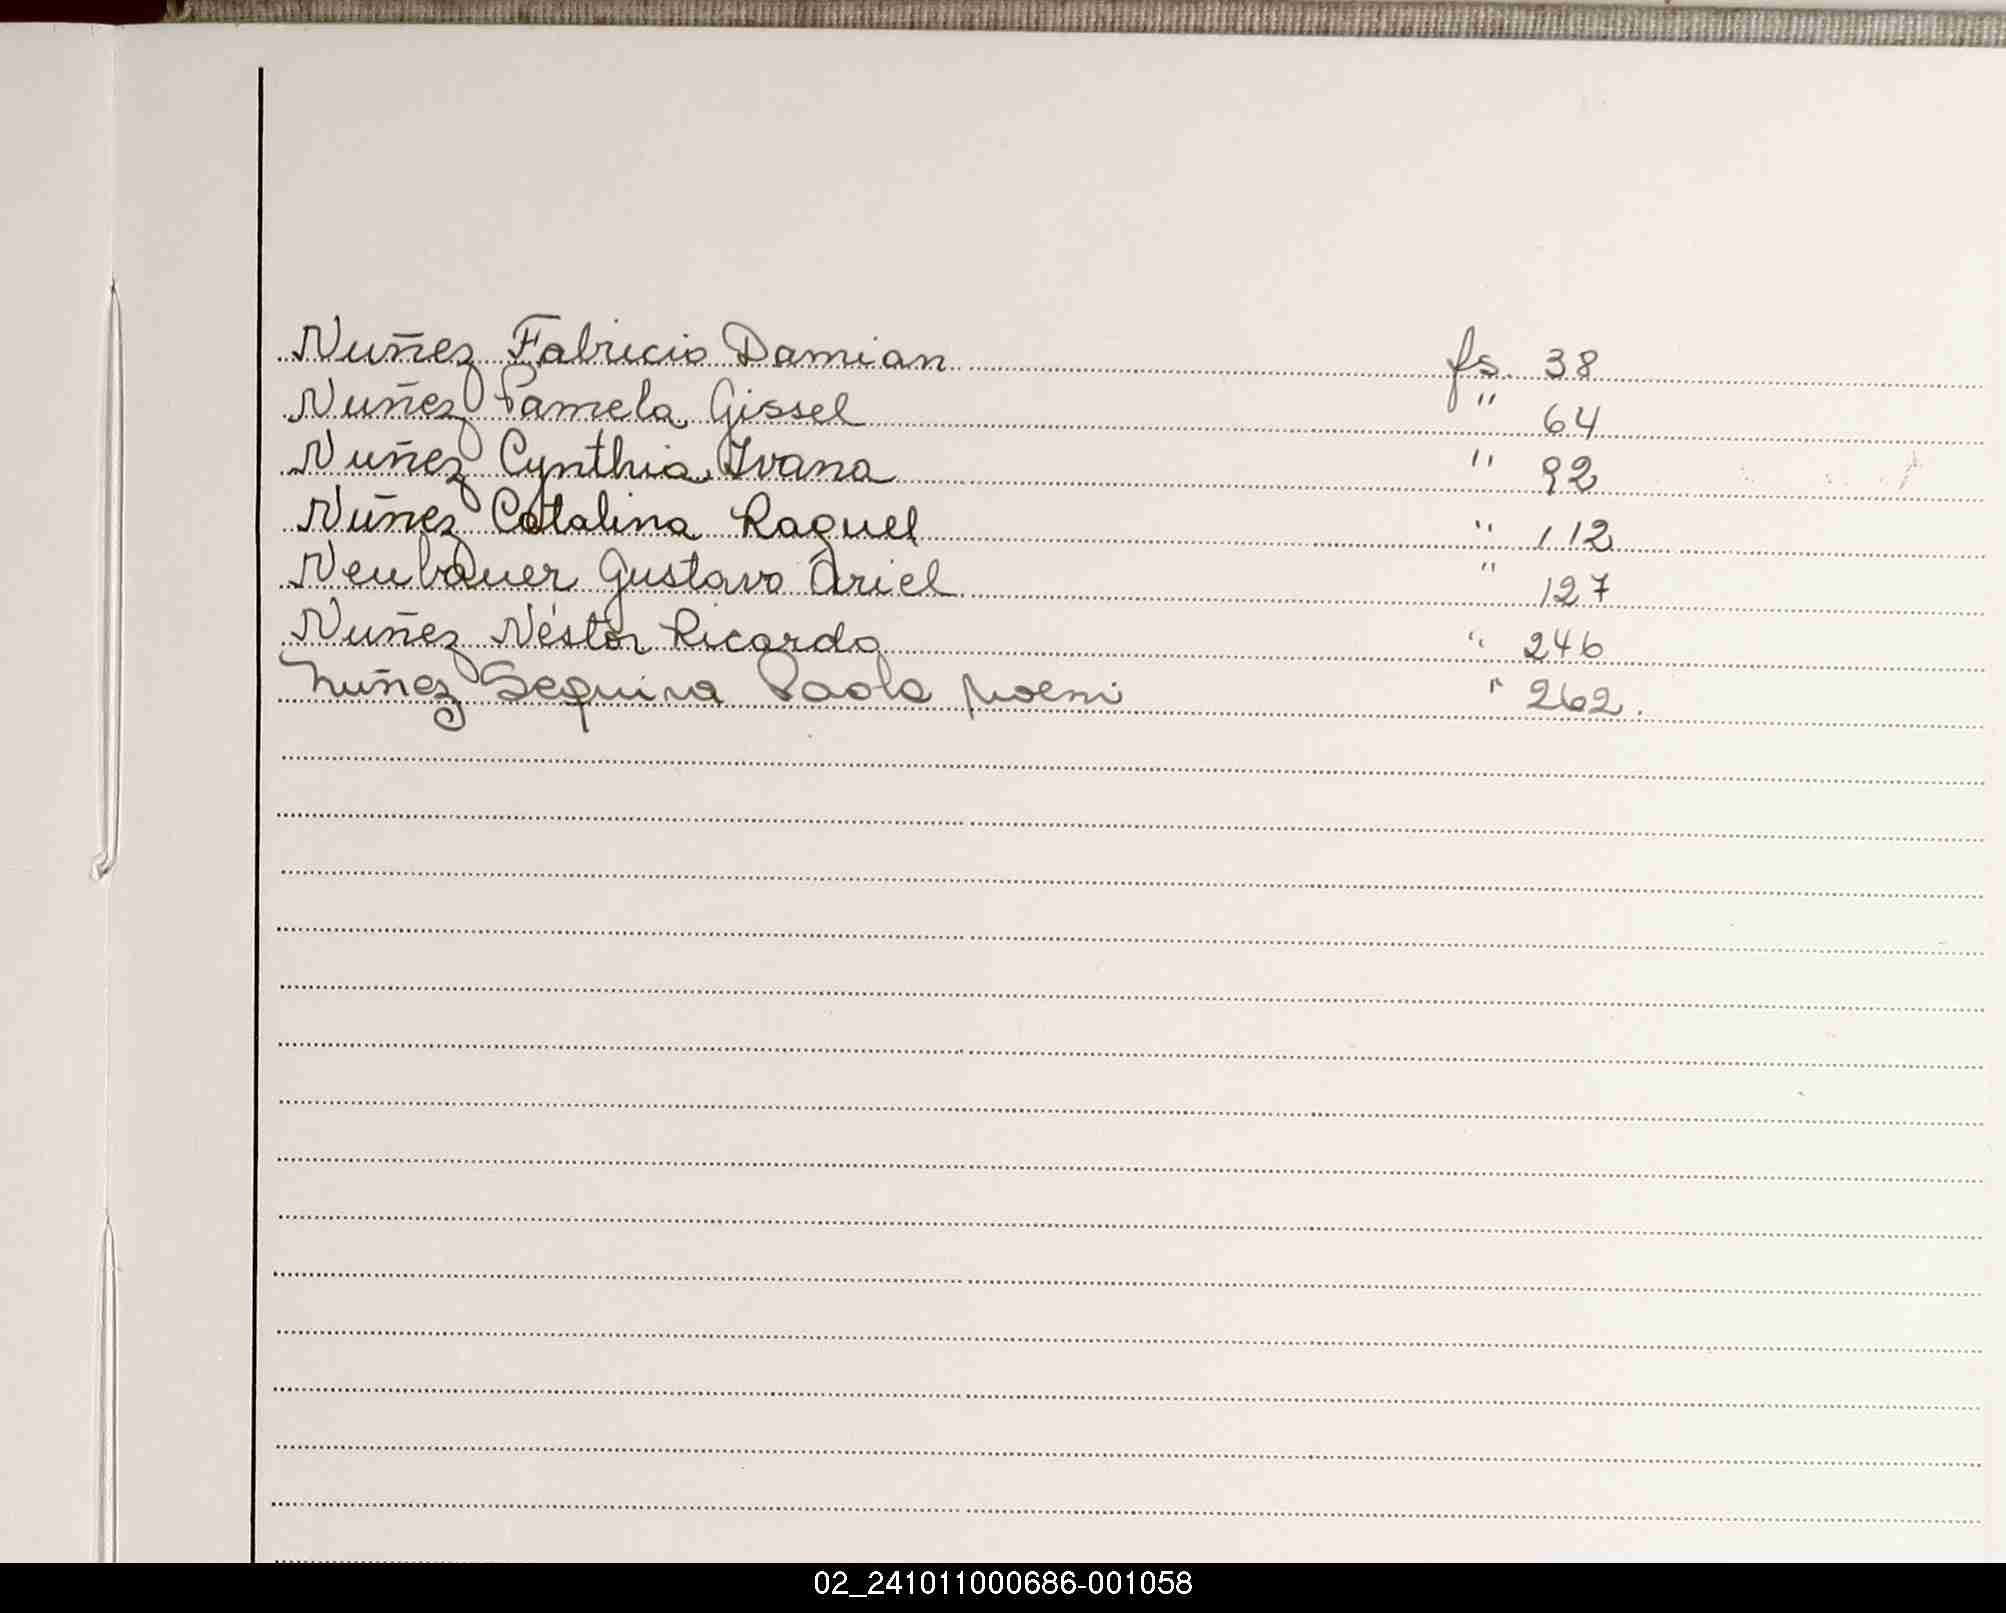 Nuñez Fabricio Damian fs. 38
Nuñez Pamela Gissel " 64
Nuñez Cynthia Ivana " 92
Nuñez Catalina Raquel " 112
Neubauer Gustavo Ariel " 127
Nuñez Néstor Ricardo " 246
Nuñez Sequira Paola Noemi " 262.
02_241011000686-001058